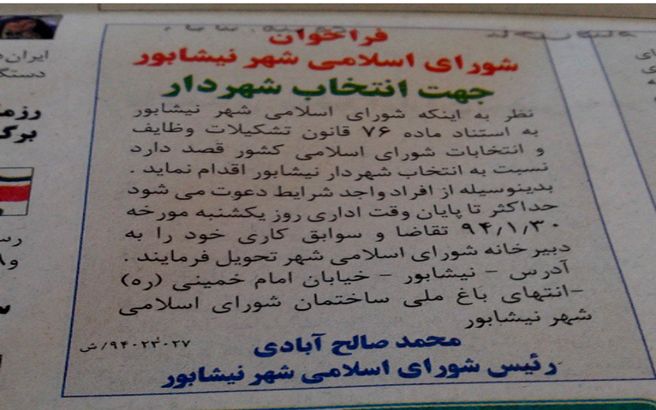 فراخوان
شورای اسلامی شهر نیشابور
جهت انتخاب شهردار
نظر به اینکه شورای اسلامی شهر نیشابور
به استناد ماده ۷۶ قانون تشکیلات وظایف
و انتخابات شورای اسلامی کشور قصد دارد
نسبت به انتخاب شهردار نیشابور اقدام نماید .
بدینوسیله از افراد واجد شرایط دعوت می شود
حداکثر تا پایان وقت اداری روز یکشنبه مورخه
۹۴/۱/۳۰ تقاضا و سوابق کاری خود را به
دبیر خانه شورای اسلامی شهر تحویل فرمایند .
آدرس - نیشابور - خیابان امام خمینی (ره)
-انتهای باغ ملی ساختمان شورای اسلامی
شهر نیشابور
محمد صالح آبادی
۹۴۰۲۳۰۲۷/ش
رئیس شورای اسلامی شهر نیشابور
ایران
دستک
رزم
برگ
رس
و۸